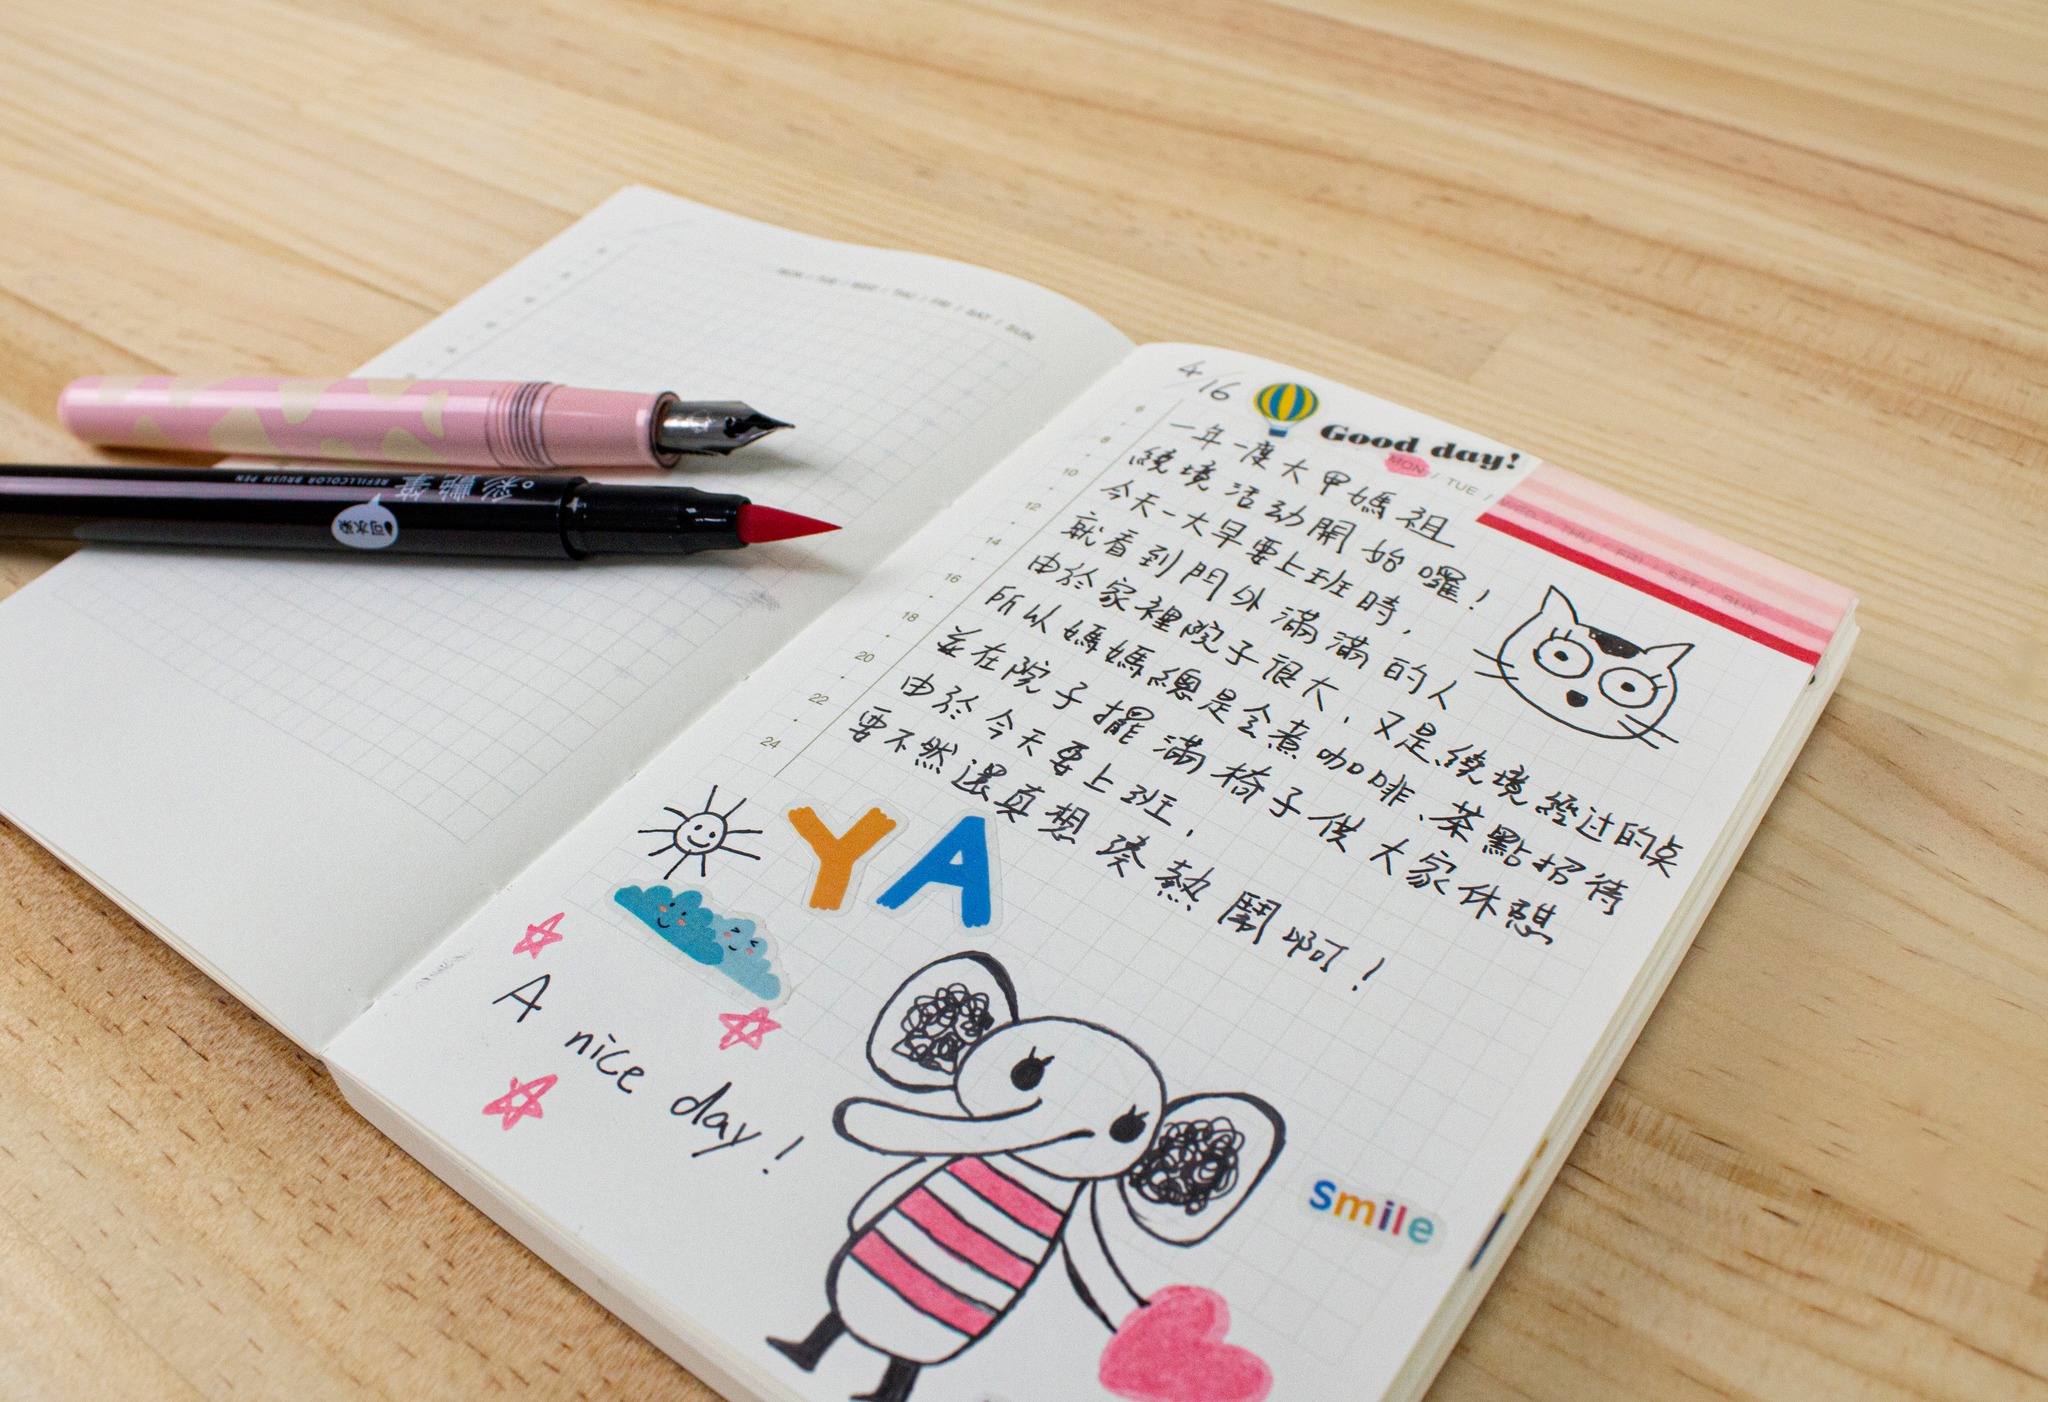 MON / TUE / WED / THU / FRI / SAT / SUN
彩繪筆
REFILLCOLOR BRUSH PEN
可水染
4/16
Good day!
MON / TUE / WED / THU / FRI / SAT / SUN
一年一度大甲媽祖
繞境活動開始囉！
今天一大早要上班時，
就看到門外滿滿的人
由於家裡院子很大，又是繞境經过的点
所以媽媽總是会煮咖啡、茶點招待
並在院子擺滿椅子供大家休憩
由於今天要上班，
要不然還真想湊熱鬧啊！
6
8
10
12
14
16
18
20
22
24
YA
A nice day!
Smile